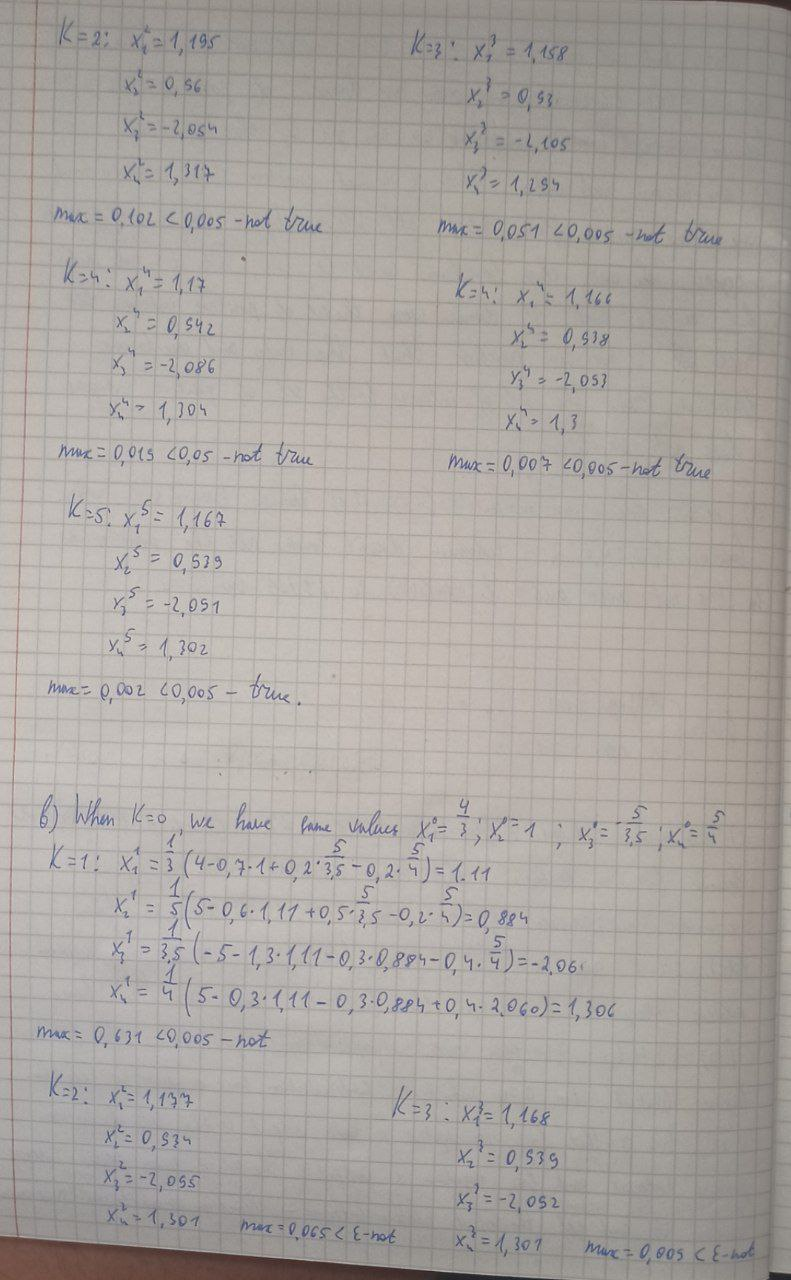 K=2: x₁² = 1,195
x₂² = 0,96
x₃² = -2,054
x₄² = 1,317
max = 0,102 < 0,005 - not true
K=3: x₁³ = 1,158
x₂³ = 0,93
x₃³ = -2,105
x₄³ = 1,294
max = 0,051 < 0,005 - not true
K=4: x₁⁴ = 1,17
x₂⁴ = 0,942
x₃⁴ = -2,086
x₄⁴ = 1,304
max = 0,019 < 0,05 - not true
K=4: x₁⁴ = 1,166
x₂⁴ = 0,938
x₃⁴ = -2,093
x₄⁴ = 1,3
max = 0,007 < 0,005 - not true
K=5: x₁⁵ = 1,167
x₂⁵ = 0,939
x₃⁵ = -2,091
x₄⁵ = 1,302
max = 0,002 < 0,005 - true.
b) When K=0, we have same values x₁⁰ = 4/3; x₂⁰ = 1; x₃⁰ = -5/3,5; x₄⁰ = 5/4
K=1: x₁¹ = 1/3 (4-0,7·1+0,2·5/3,5-0,2·5/4) = 1.11
x₂¹ = 1/5 (5-0,6·1,11+0,5·5/3,5-0,2·5/4) = 0,884
x₃¹ = 1/3,5 (-5-1,3·1,11-0,3·0,884-0,4·5/4) = -2,06
x₄¹ = 1/4 (5-0,3·1,11-0,3·0,884+0,4·2,060) = 1,306
max = 0,631 < 0,005 - not
K=2: x₁² = 1,177
x₂² = 0,934
x₃² = -2,095
x₄² = 1,301 max = 0,065 < ε - not
K=3: x₁³ = 1,168
x₂³ = 0,939
x₃³ = -2,092
x₄³ = 1,301 max = 0,009 < ε - not